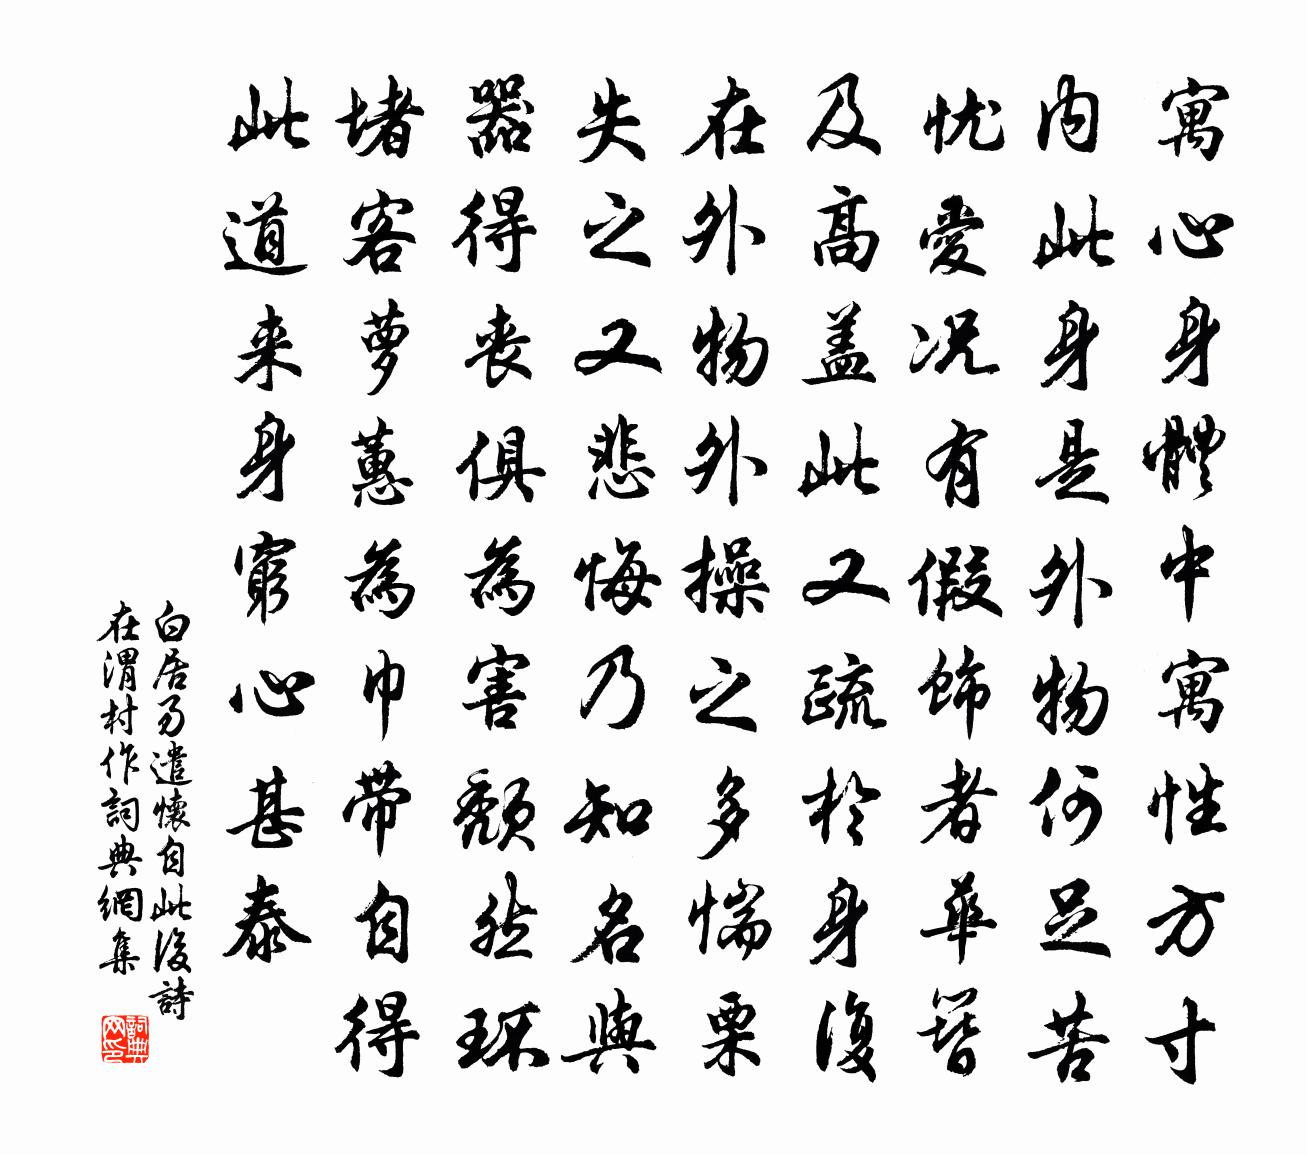 寓心身體中寓性方寸
內此身是外物何足苦
忧愛况有假飾者華簪
及高盖此又疏於身復
在外物外操之多惴栗
失之又悲悔乃知名與
器得喪俱為害頹然環
堵客萝蕙為巾带自得
此道来身窮心甚泰
白居易遣懷自此後詩
在渭村作詞典網集
詞典
网印